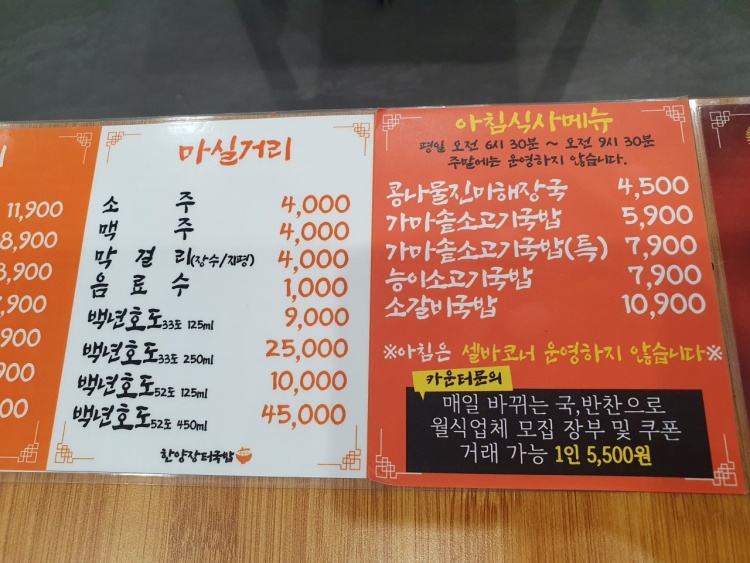 11,900
8,900
3,900
7,900
900
900
00
마실거리
소 주 4,000
맥 주 4,000
막 걸 리(장수/지평) 4,000
음 료 수 1,000
백년호도33도 125ml 9,000
백년호도33도 250ml 25,000
백년호도52도 125ml 10,000
백년호도52도 450ml 45,000
한양장터국밥
아침식사메뉴
평일 오전 6시 30분 ~ 오전 9시 30분
주말에는 운영하지 않습니다.
콩나물진미해장국 4,500
가마솥소고기국밥 5,900
가마솥소고기국밥(특) 7,900
능이소고기국밥 7,900
소갈비국밥 10,900
※아침은 셀바코너 운영하지 않습니다※
카운터문의
매일 바뀌는 국,반찬으로
월식업체 모집 장부 및 쿠폰
거래 가능 1인 5,500원